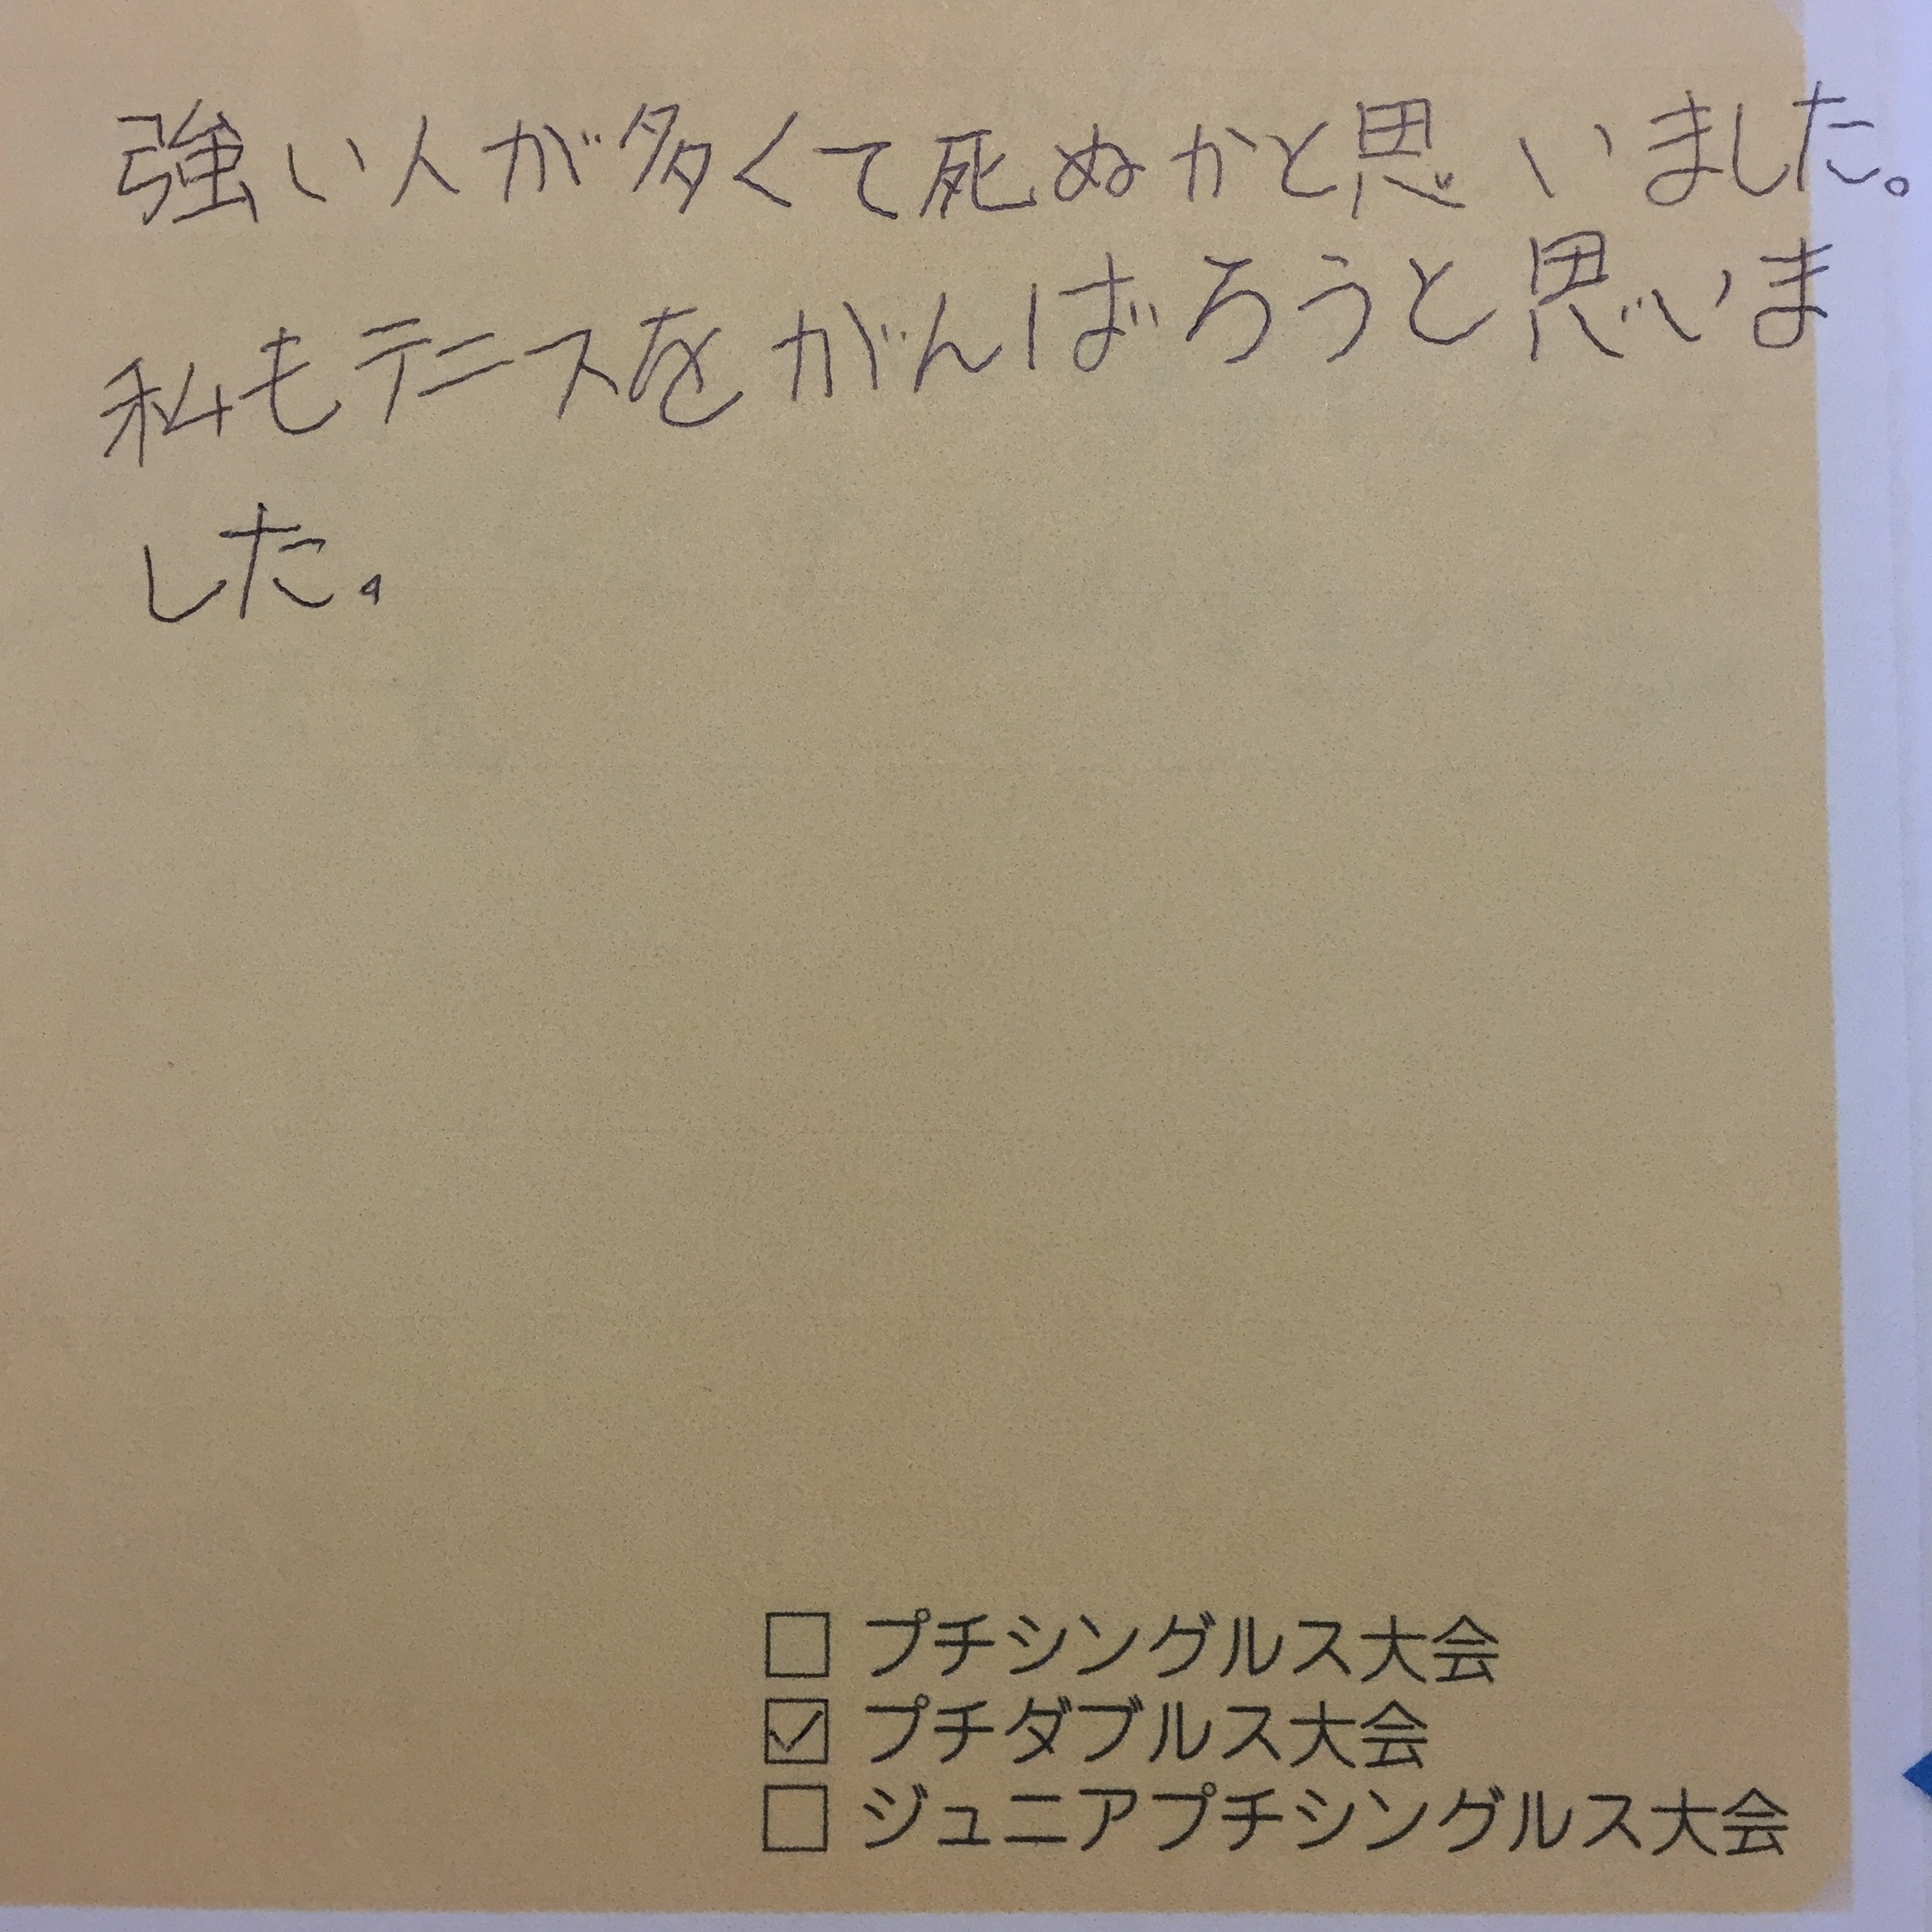 強い人が多くて死ぬかと思いました。
私もテニスをがんばろうと思いま
した。
□ プチシングルス大会
☑ プチダブルス大会
□ ジュニアプチシングルス大会